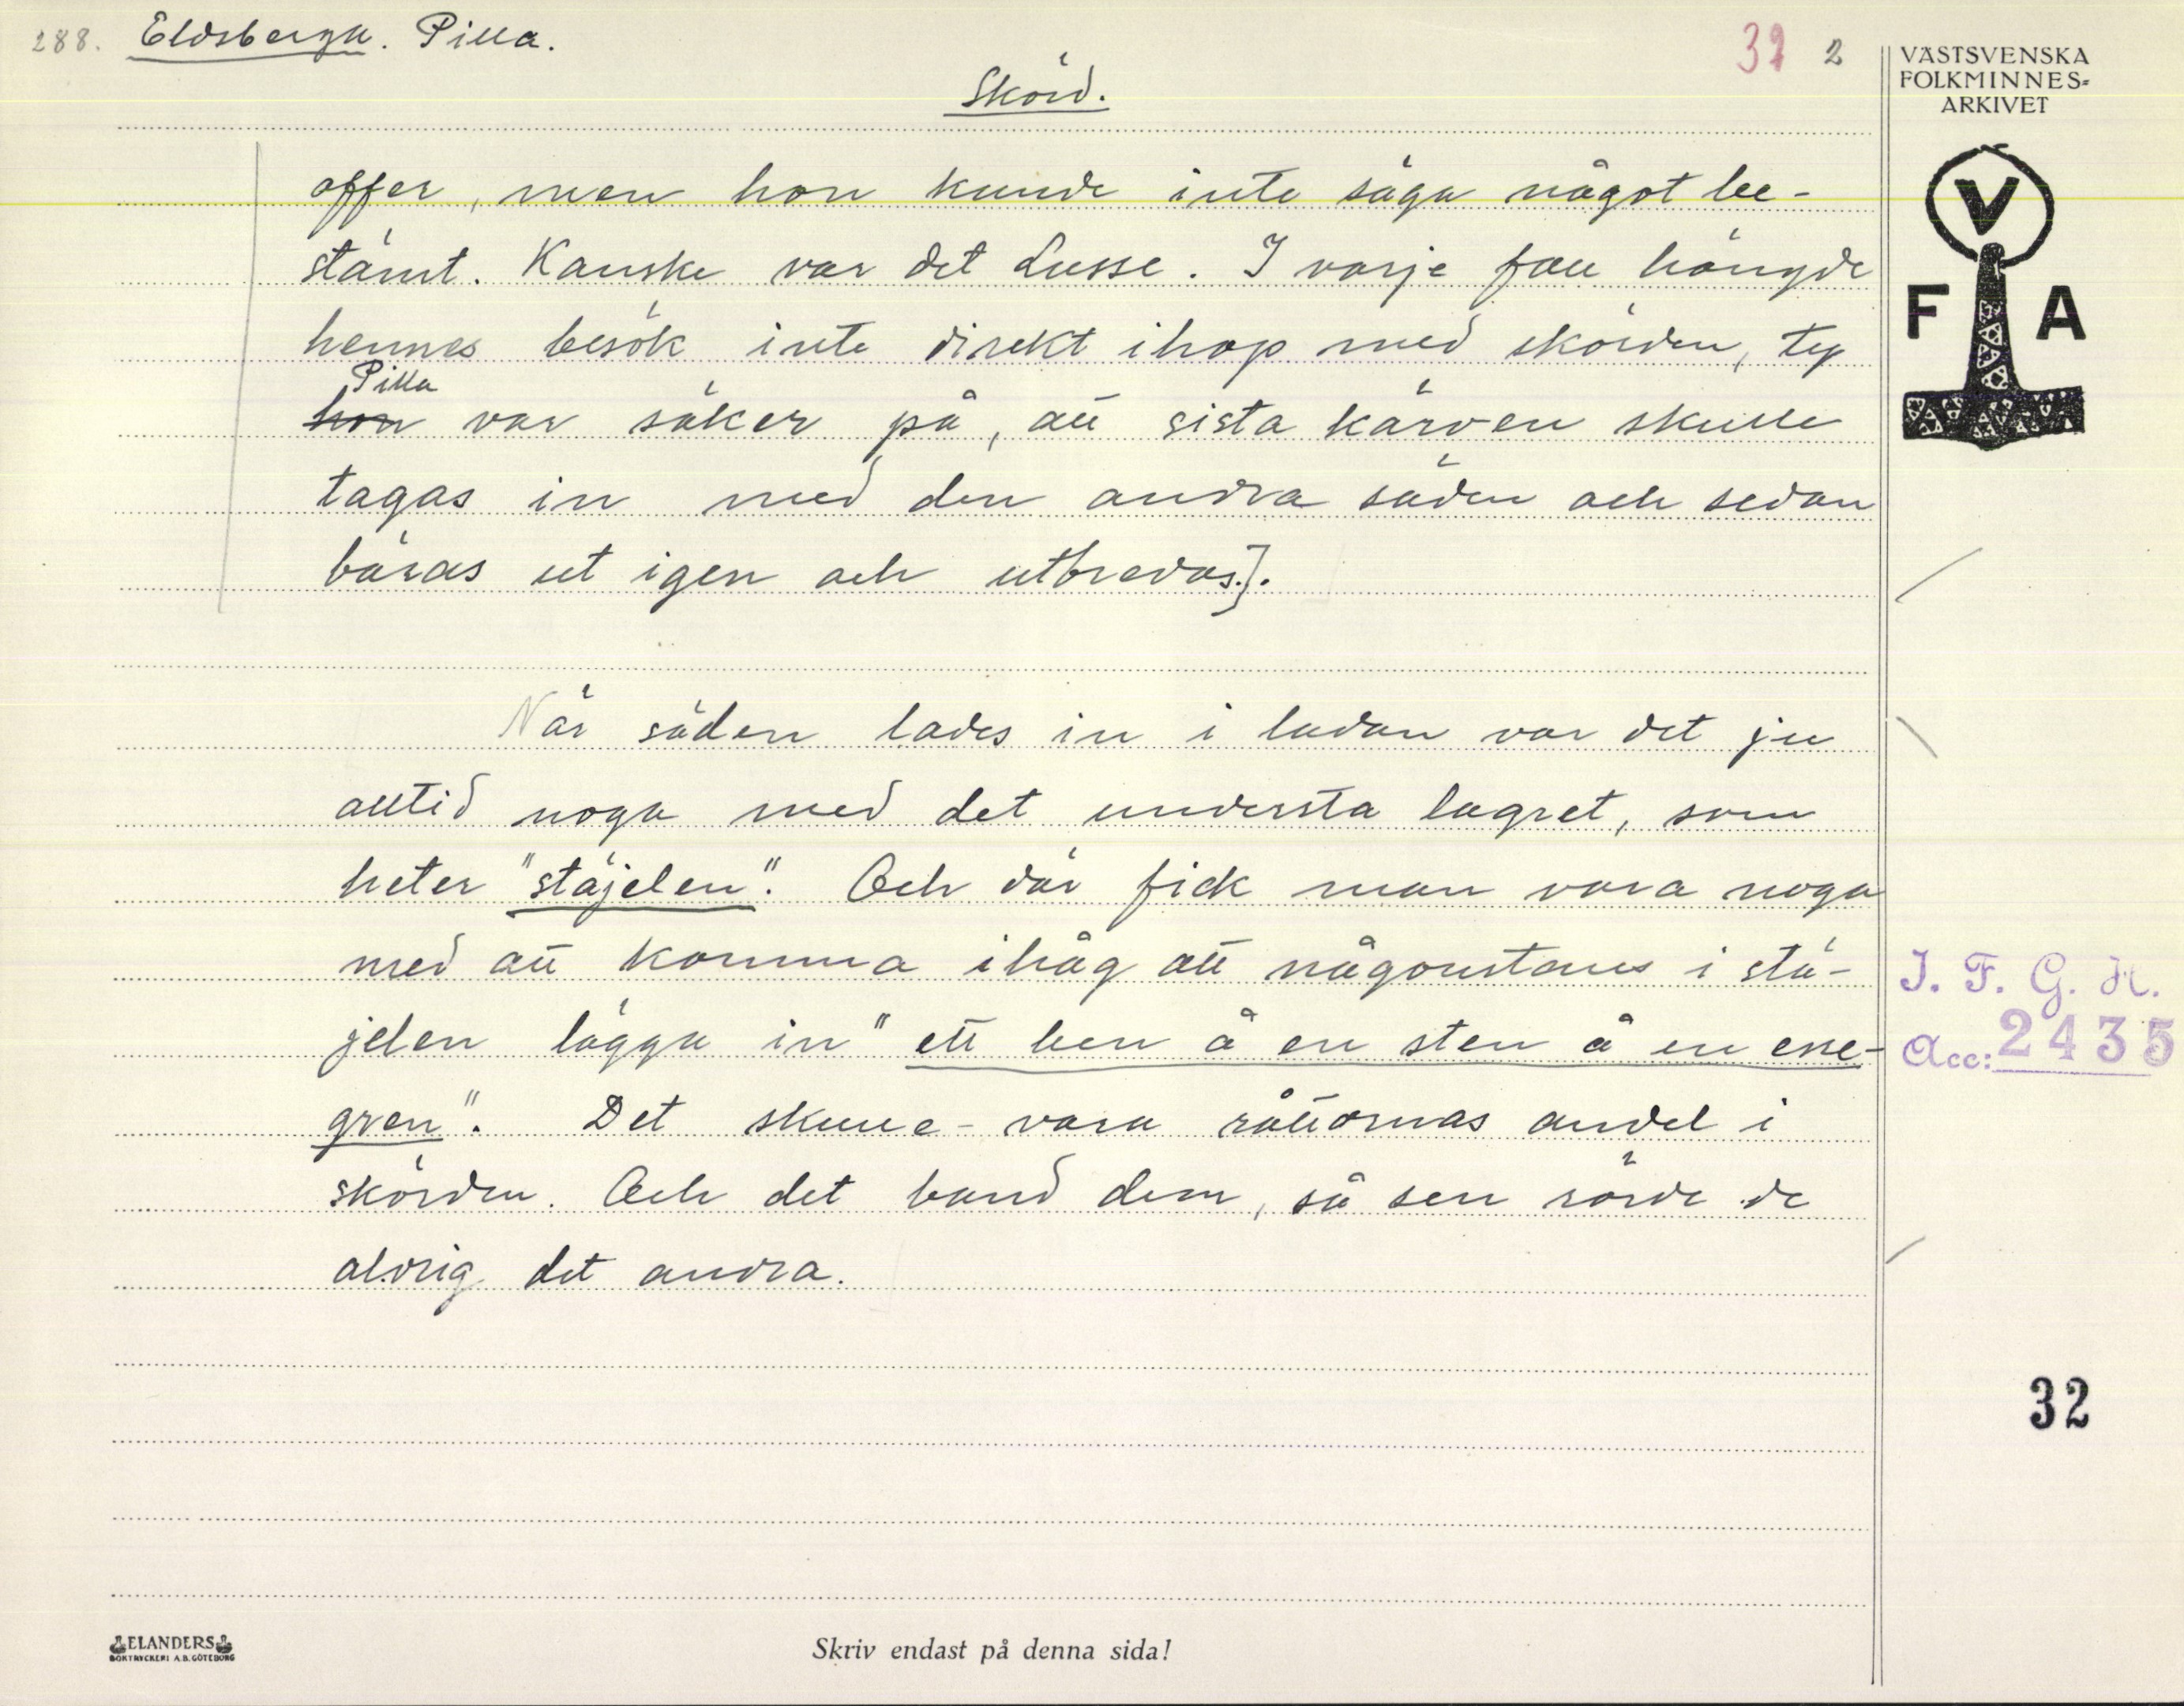 288. Eldsberga. Pilla.
32 2
Skörd.
VÄSTSVENSKA
FOLKMINNES=
ARKIVET
V
F A
offer, men hon kunde inte säga något be-
stämt. Kanske var det Lusse. I varje fall hängde
hennes besök inte direkt ihop med skörden, ty
Pilla
hon var säker på, att sista kärven skulle
tagas in med den andra säden och sedan
bäras ut igen och utbredas.].
När säden lades in i ladan var det ju
alltid noga med det understa lagret, som
heter "stäjelen". Och där fick man vara noga
med att komma ihåg att någonstans i stä-
jelen lägga in "ett ben å en sten å en ene-
gren". Det skulle vara råttornas andel i
skörden. Och det band dem, så sen rörde de
aldrig det andra.
I. F. G. H.
Acc: 2435
32
ELANDERS
BOKTRYCKERI A.B. GÖTEBORG
Skriv endast på denna sida!